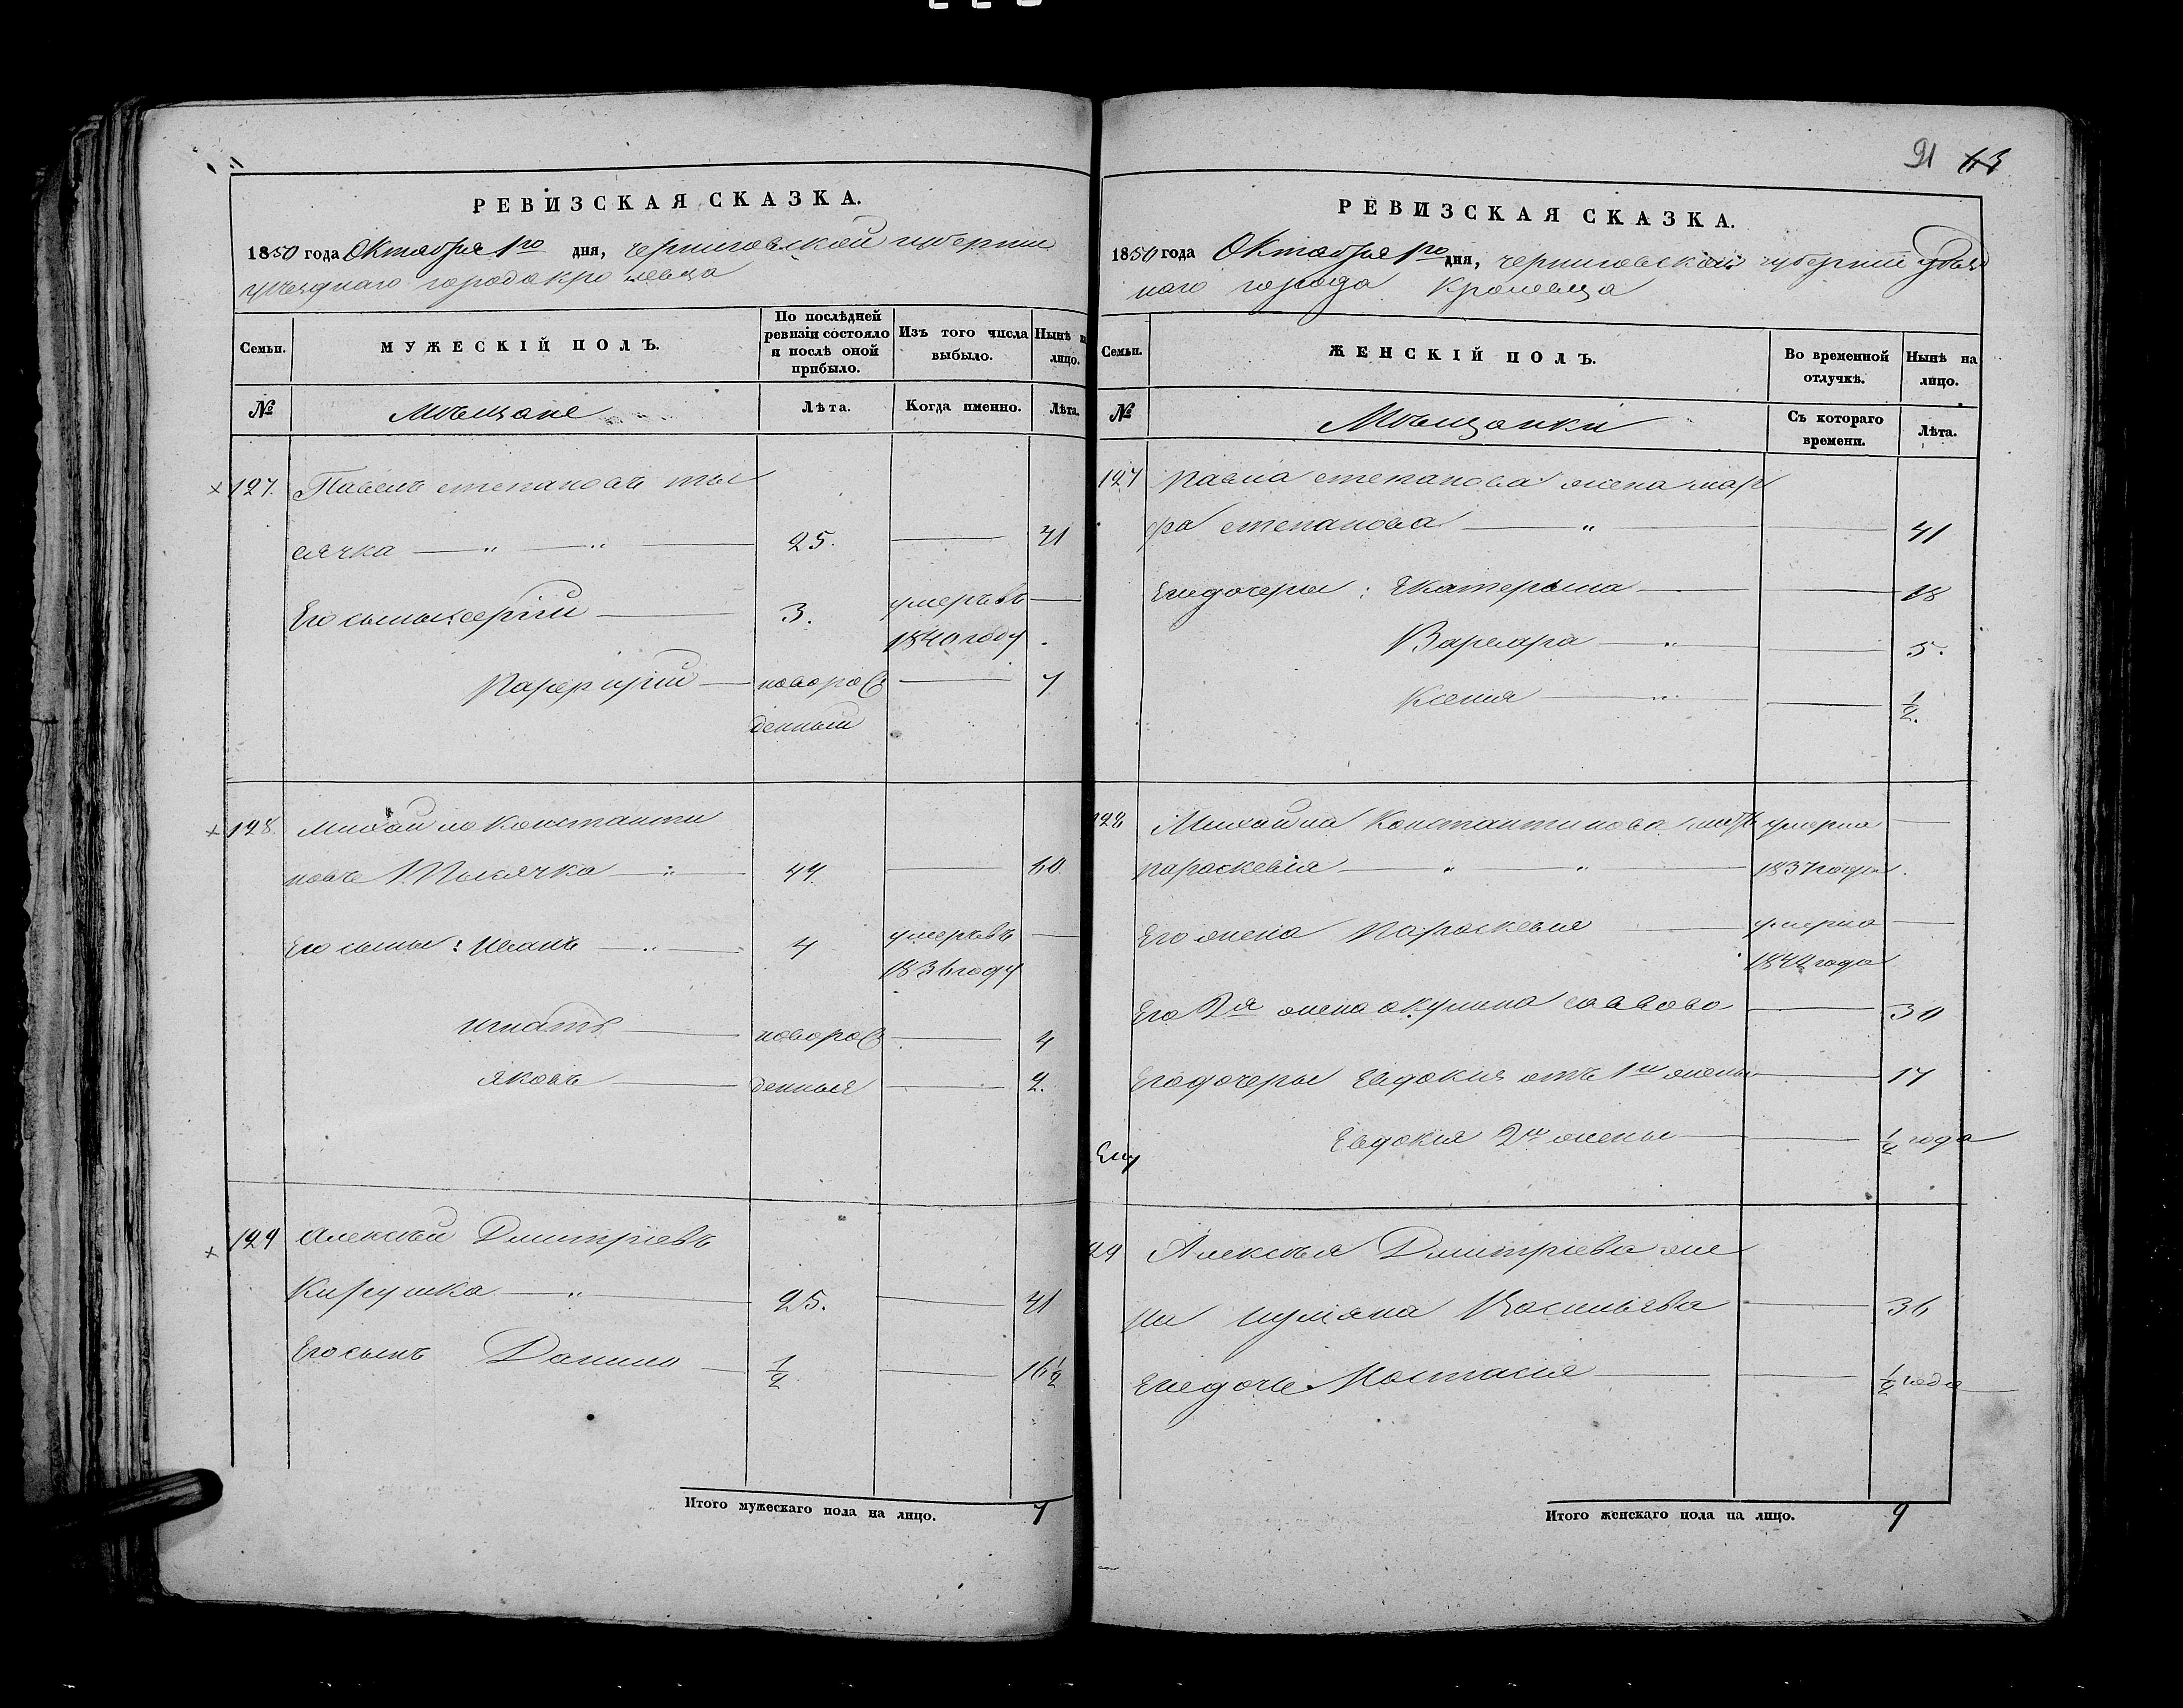 РЕВИЗСКАЯ СКАЗКА.
1850 года Октября 1го дня, черниговской губернии
уъезднаго города кролевца
Семьи.
МУЖЕСКІЙ ПОЛЪ.
По послѣдней
ревизіи состояло
и послѣ оной
прибыло.
Изъ того числа
выбыло.
Нынѣ н
лицо.
№
Мѣщане
Лѣта.
Когда именно.
Лѣта.
127. Павелъ степановъ ты
сячка 25. 41
Его сыны: сергій 3. умеръ въ
1840 году
Парфирій новорож 7
денный
128. михайло константи
новъ Тысячка 44 60.
Его сыны: Иванъ 4 умеръ въ
1836 году
игнатъ новорож 4
яковъ денныя 2.
129 Алексѣй Дмитріевъ
Кирушка 25. 41
Его сынъ Данило 1/2 16 1/2
Итого мужескаго пола на лицо. 7
91 63
РЕВИЗСКАЯ СКАЗКА.
1850 года Октября 1го дня, черниговской губерніи уъезд
наго города Кролевца
Семьи.
ЖЕНСКІЙ ПОЛЪ.
Во временной
отлучкѣ.
Нынѣ на
лицо.
№
Мѣщанки
Съ котораго
времени.
Лѣта.
127 павла степанова жена мар
фа степанова 41
Ихъ дочеры: Екатерына 18
Варвара 5.
Ксенія 1/2.
128 Михайла Константинова мать умерла
параскевія 1837 года.
Его жена Параскевія умерла
1842 года
Его 2я жена акулина саввова 30
Его дочеры Евдокия отъ 1й жены 17
Евдокия 2й жены 1/2 года
Ему
29 Алексѣя Дмитріева же
на иулияна Васильева 36
Ихъ дочь Настасия 1/2 года
Итого женскаго пола на лицо. 9